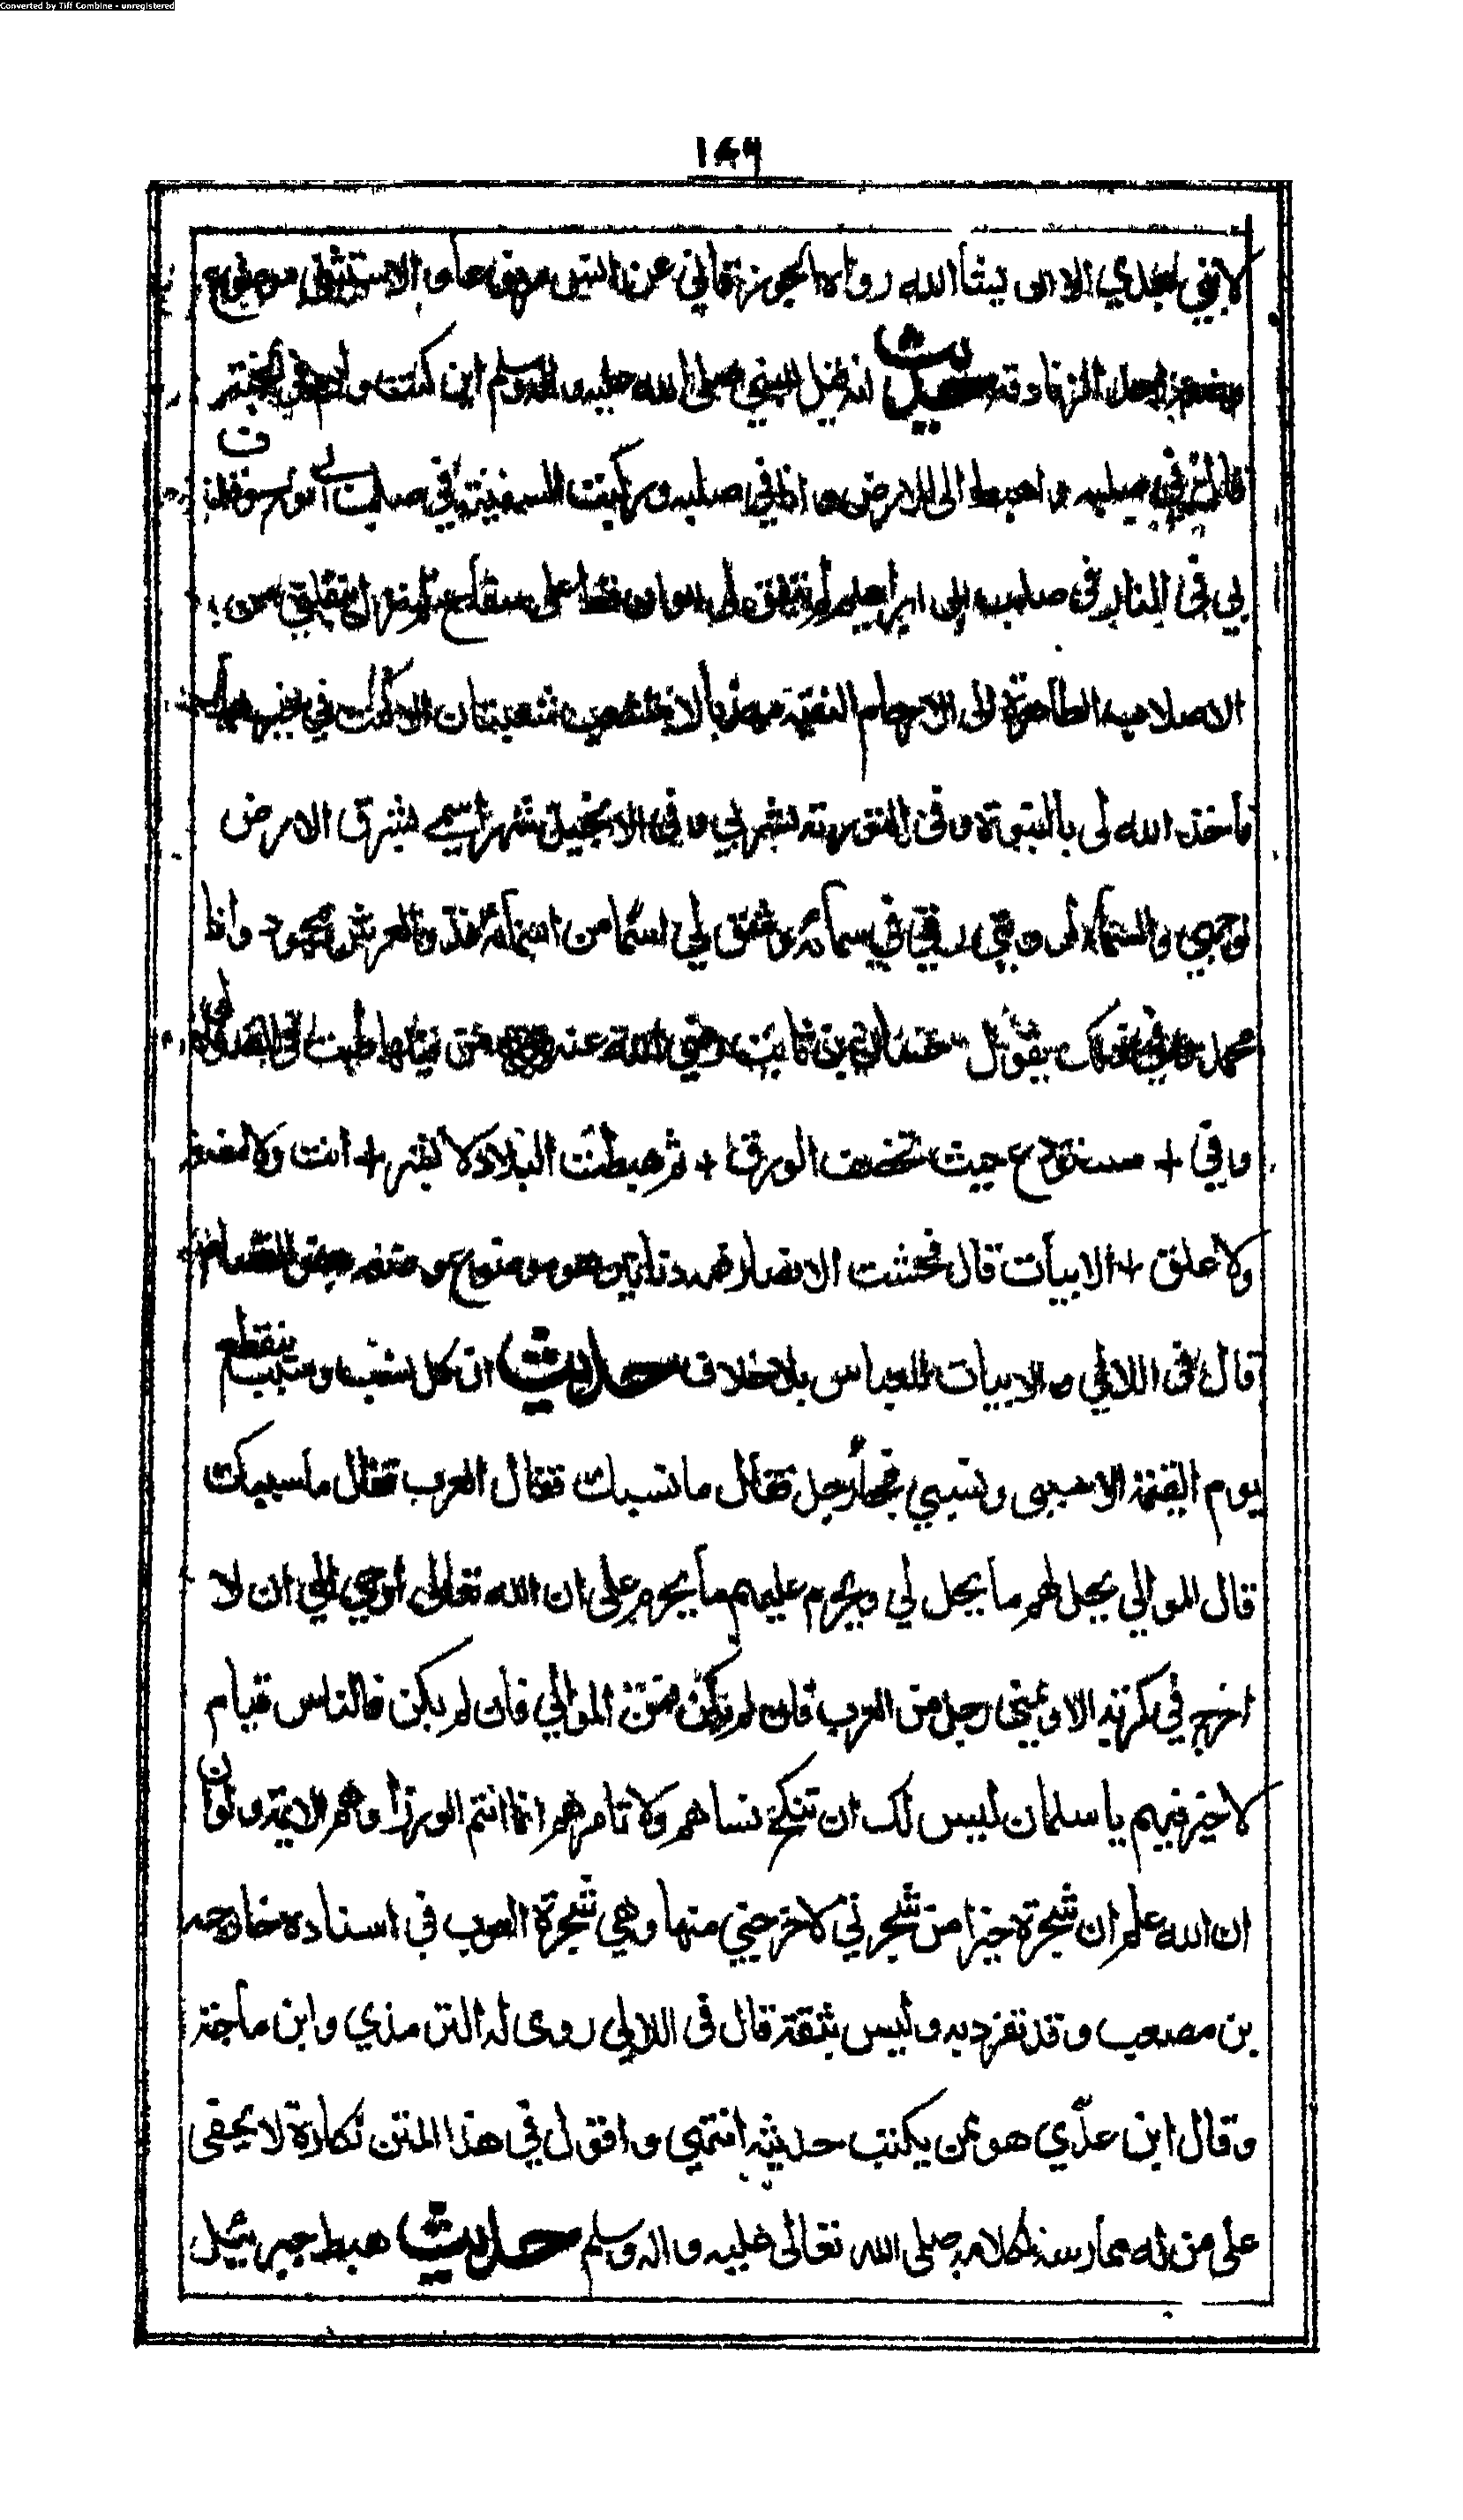 Converted by Tiff Combine - unregistered
١٤٩
لا نبي بعدي الا ان يشأ الله رواه الجوزقاني عن انس مرفوعا و الاستثنى موضوع
وضعه احد الزنادقة حديث انه قيل للنبي صلى الله عليه واله وسلم اين كنت وادم في الجنة
قال في صلبه واهبط الى الارض وانا في صلبه وركبت السفينة في صلب ابي نوح وقذف
بي في النار في صلب ابي ابراهيم لم يتفق لي ابوان قط على سفاح لم يزل ينقلني من
الاصلاب الطاهرة الى الارحام النقية مهذبا لا تتشعب شعبتان الا كنت في خيرهما
فأخذ الله لي بالنبوة وفي التورية بشر بي وفي الانجيل شهر اسمي يشرق الارض
لوجهي والسماء لرؤيتي ورقي بي في سمائه وشق لي اسما من اسمائه فذو العرش محمود وانا
محمد وفي ذلك يقول حسان بن ثابت رضي الله عنه من قبلها طبت في الظلال
وفي + مستودع حيث تخصف الورق + ثم هبطت البلاد لا بشر + انت ولا مضغة
ولا علق + الابيات قال فحشت الانصار فمه دنانير هو موضوع وضعه بعض القصاص
قال في اللالي والابيات للعباس بلا خلاف حديث ان كل نسب وسبب ينقطع
يوم القيمة الا سببي ونسبي فجاء رجل فقال ما نسبك فقال العرب فقال ما سببك
قال الموالي يحل لهم ما يحل لي ويحرم عليهم ما يحرم علي ان الله تعالى اوحي الي ان لا
اخرج في كربة الا و يميني رجل من العرب فان لم يكن فمن الموالي فان لم يكن فالناس قيام
لا خير فيهم يا سلمان ليس لك ان تنكح نساهم ولا تامرهم انما انتم الوزرا وهم الايمة ولو ان
ان الله علم ان شجرة خيرا من شجرتي لاخرجني منها وهي شجرة العرب في اسناده خارجه
بن مصعب وقد تفرد به وليس بثقة قال في اللالي روى له الترمذي وابن ماجة
وقال ابن عدّي هو ممن يكتب حديثه انتهى واقول في هذا المتن نكارة لا يخفى
على من له ممارسة بكلامه صلى الله تعالى عليه واله وسلم حديث هبط جبرئيل